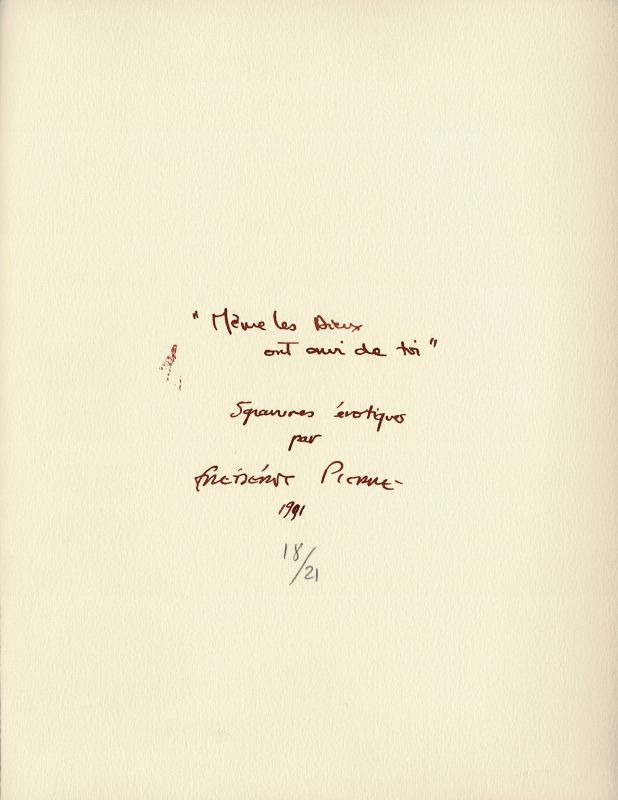 "Même les Dieux
ont envi de toi"
5 gravures érotiques
par
Frédéric Pierre
1991
18/21